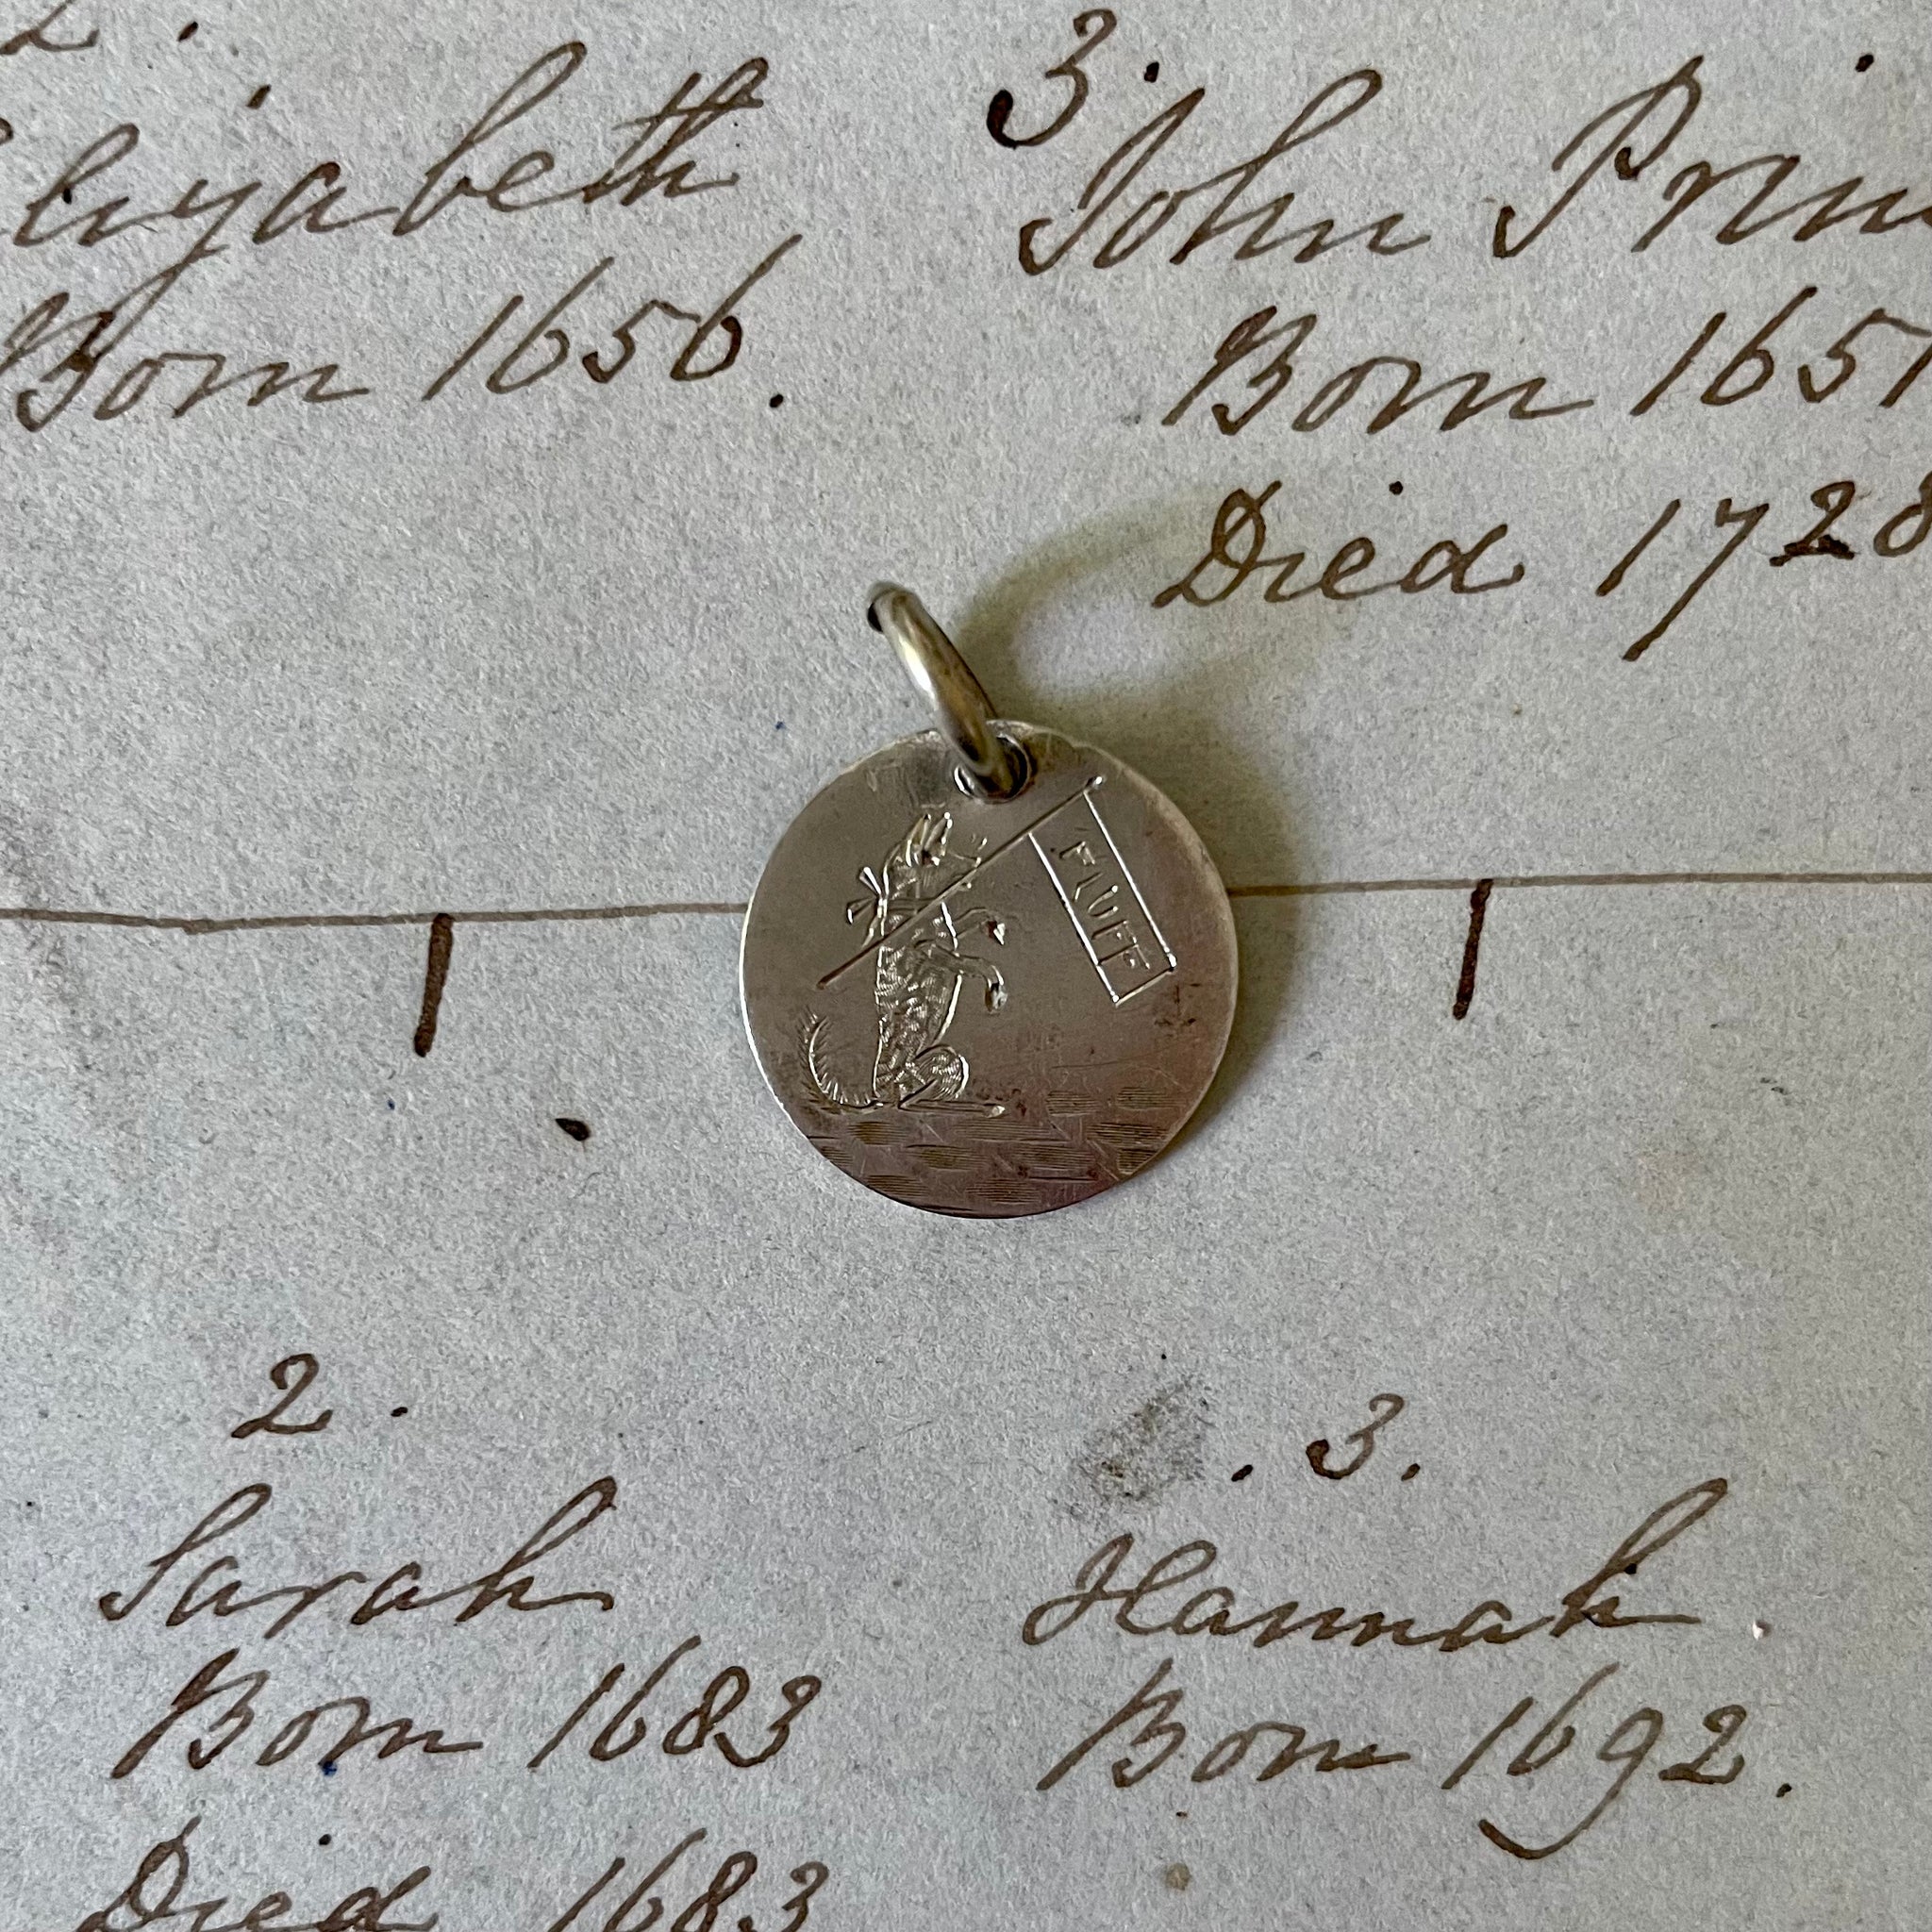 2.
3.
Elizabeth
John Prin
Born 1656.
Born 165
Died 1728
FLUFF
2.
3.
Sarah
Hannah
Born 1683
Born 1692.
Died 1683